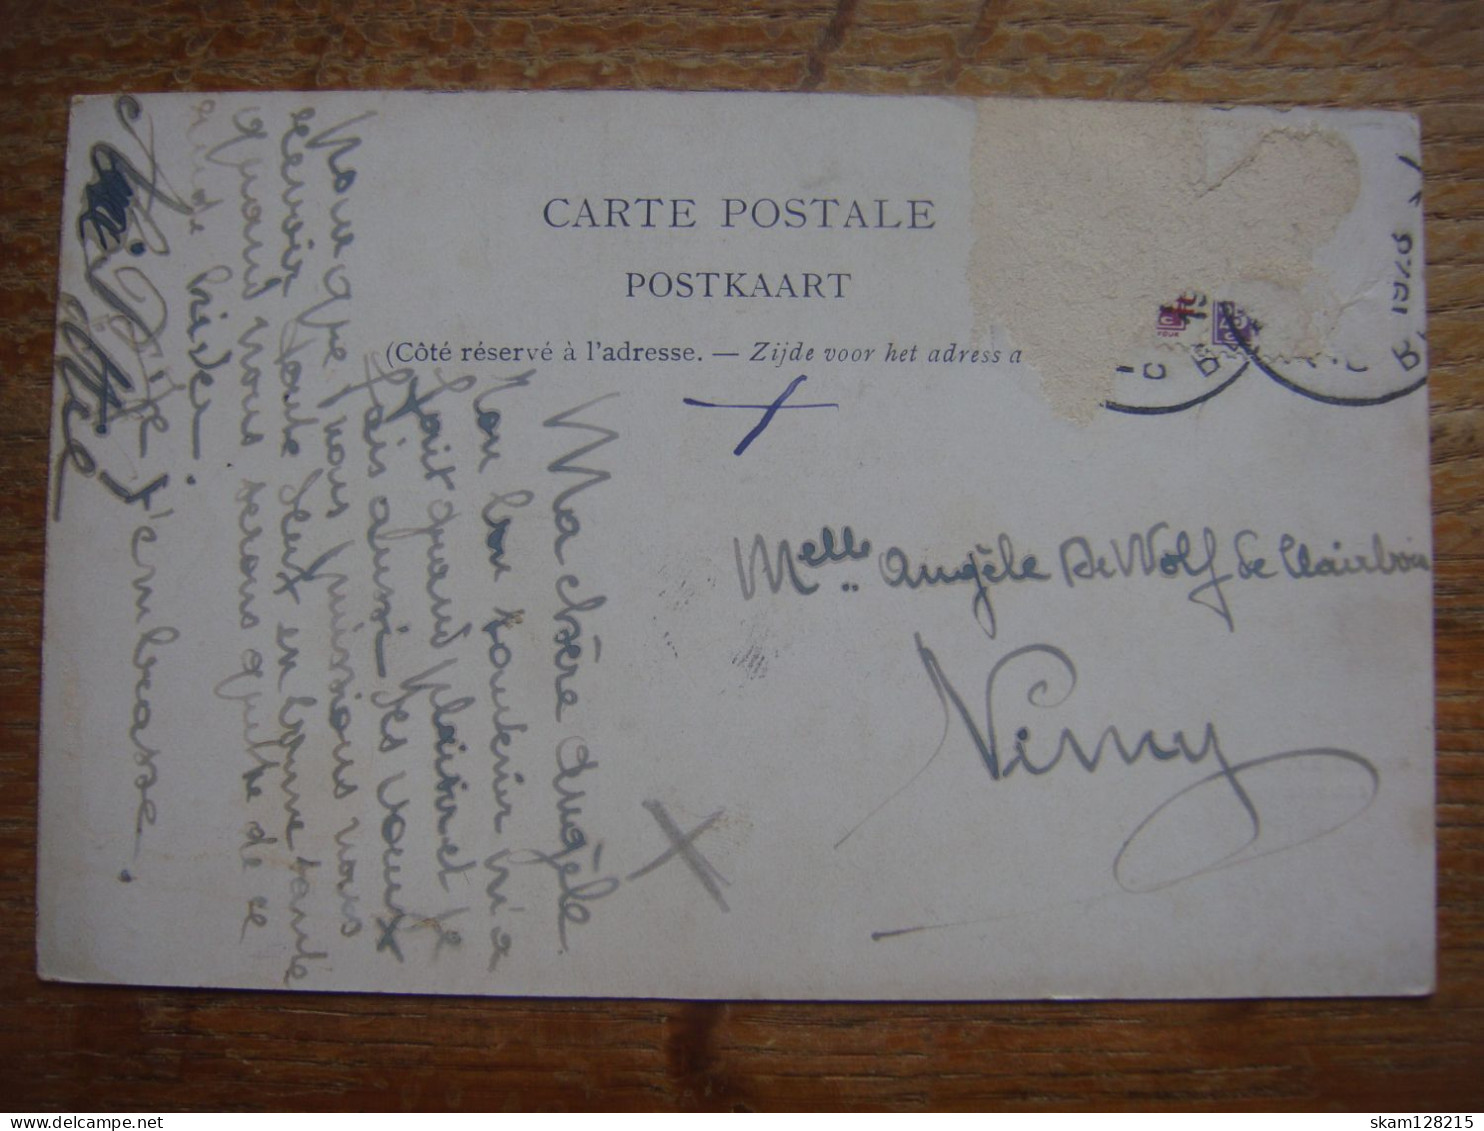 CARTE POSTALE
POSTKAART
(Côté réservé à l'adresse. — Zijde voor het adress a
1928
Melle Angèle De Wolf de Clairbois
Nimy
Ma chère Angèle.
Ton bon souvenir m'a
fait grand plaisir et je
fais aussi des vœux
pour que nous puissions nous
revoir toute deux en bonne santé
quand nous serons quitte de ce
rude hiver.
Je t'embrasse.
skam128215